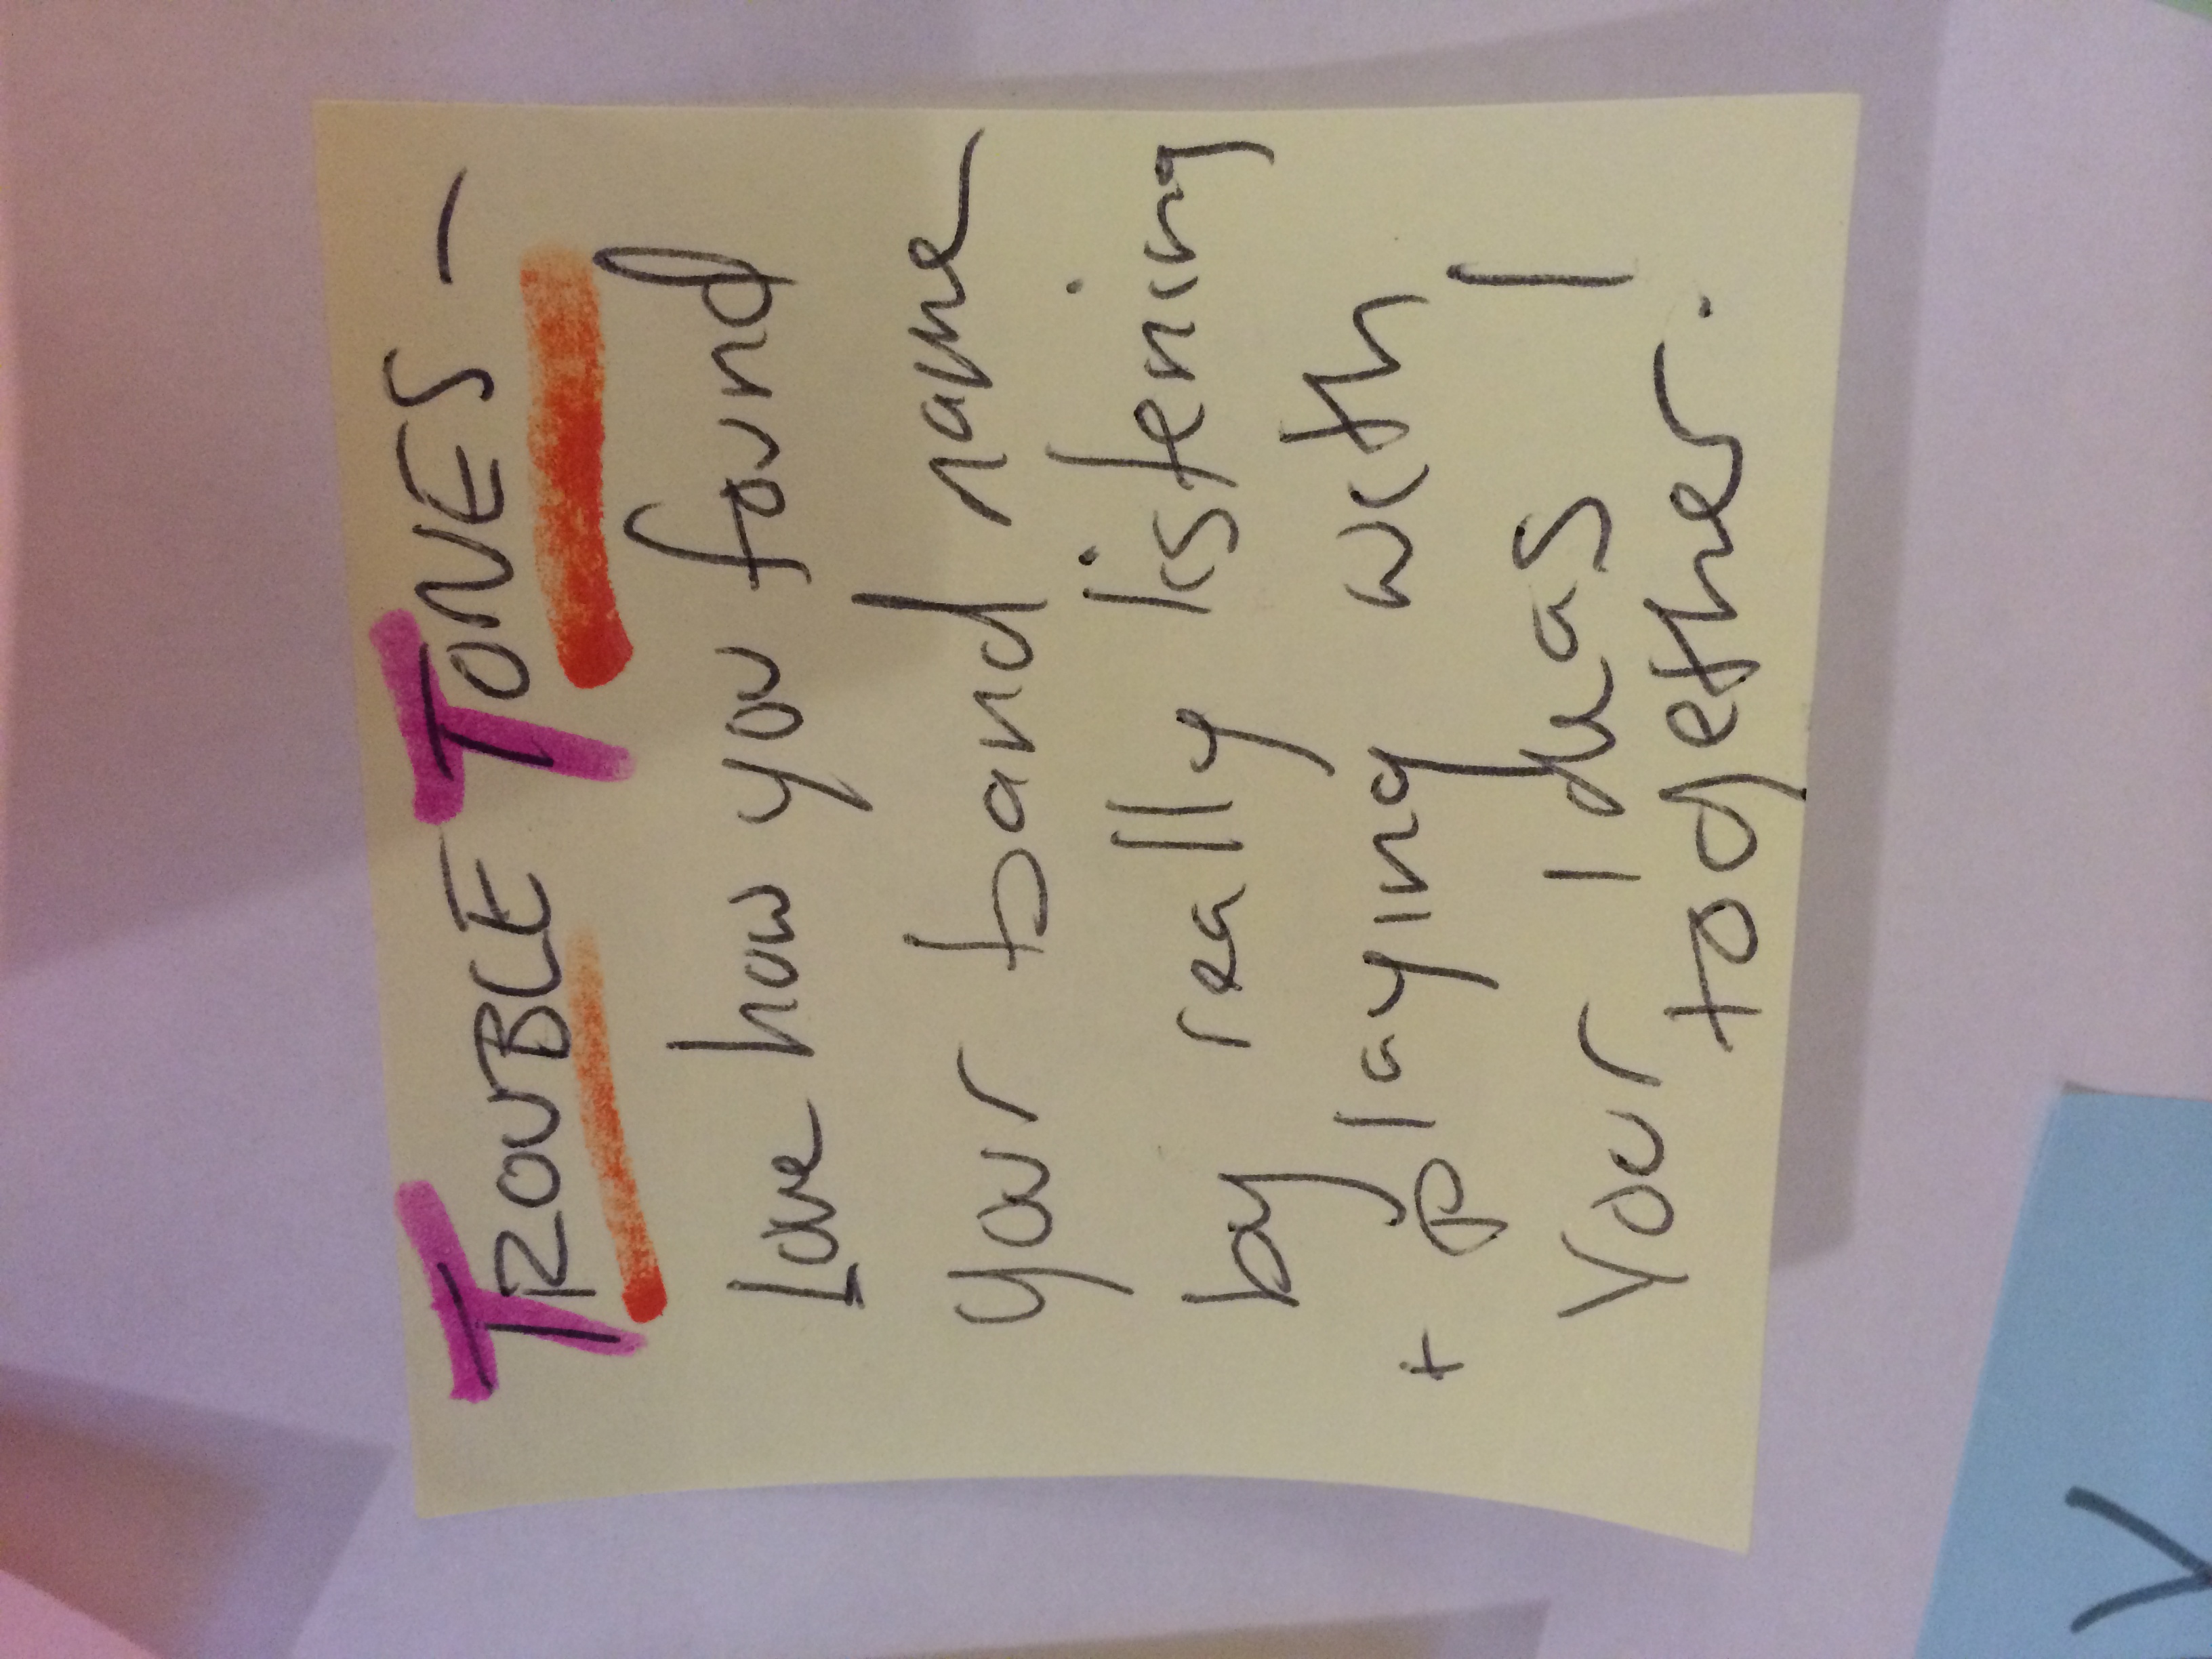 TROUBLE TONES —
Love how you found
your band name
by really listening
+ playing with
Your ideas
together!
V